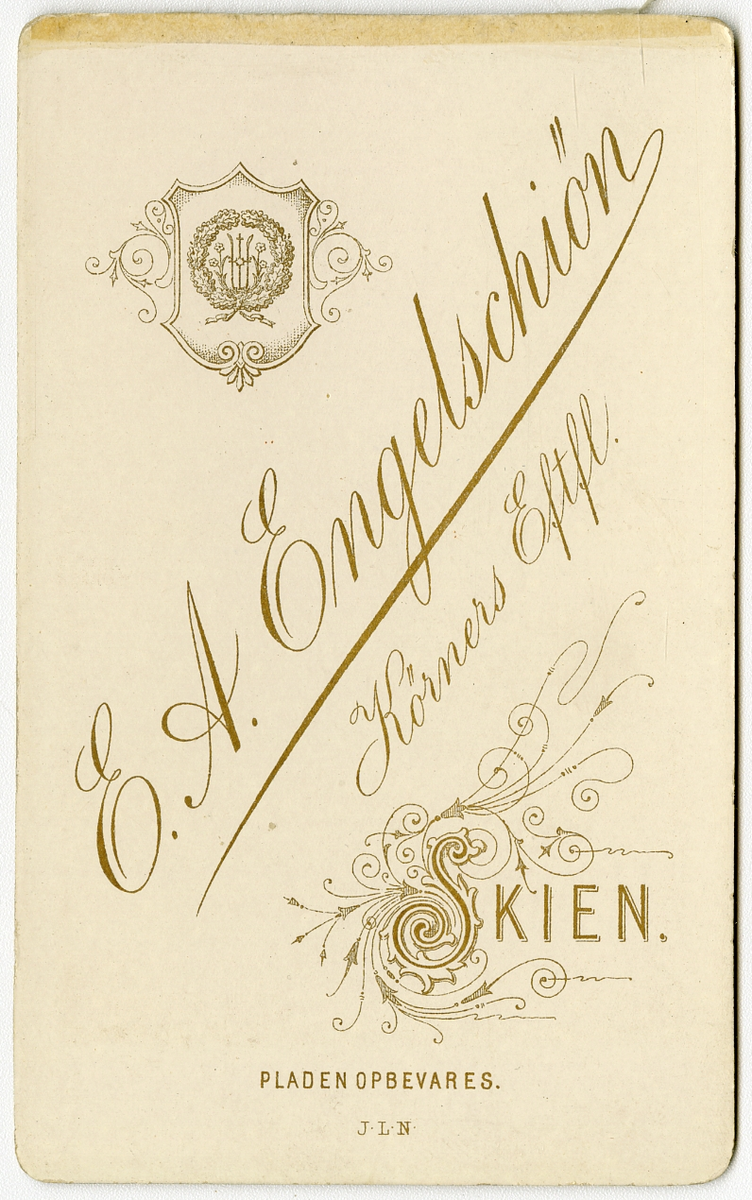 E. A. Engelschiön
Körners Eftfl.
SKIEN.
PLADEN OPBEVARES.
J·L·N·